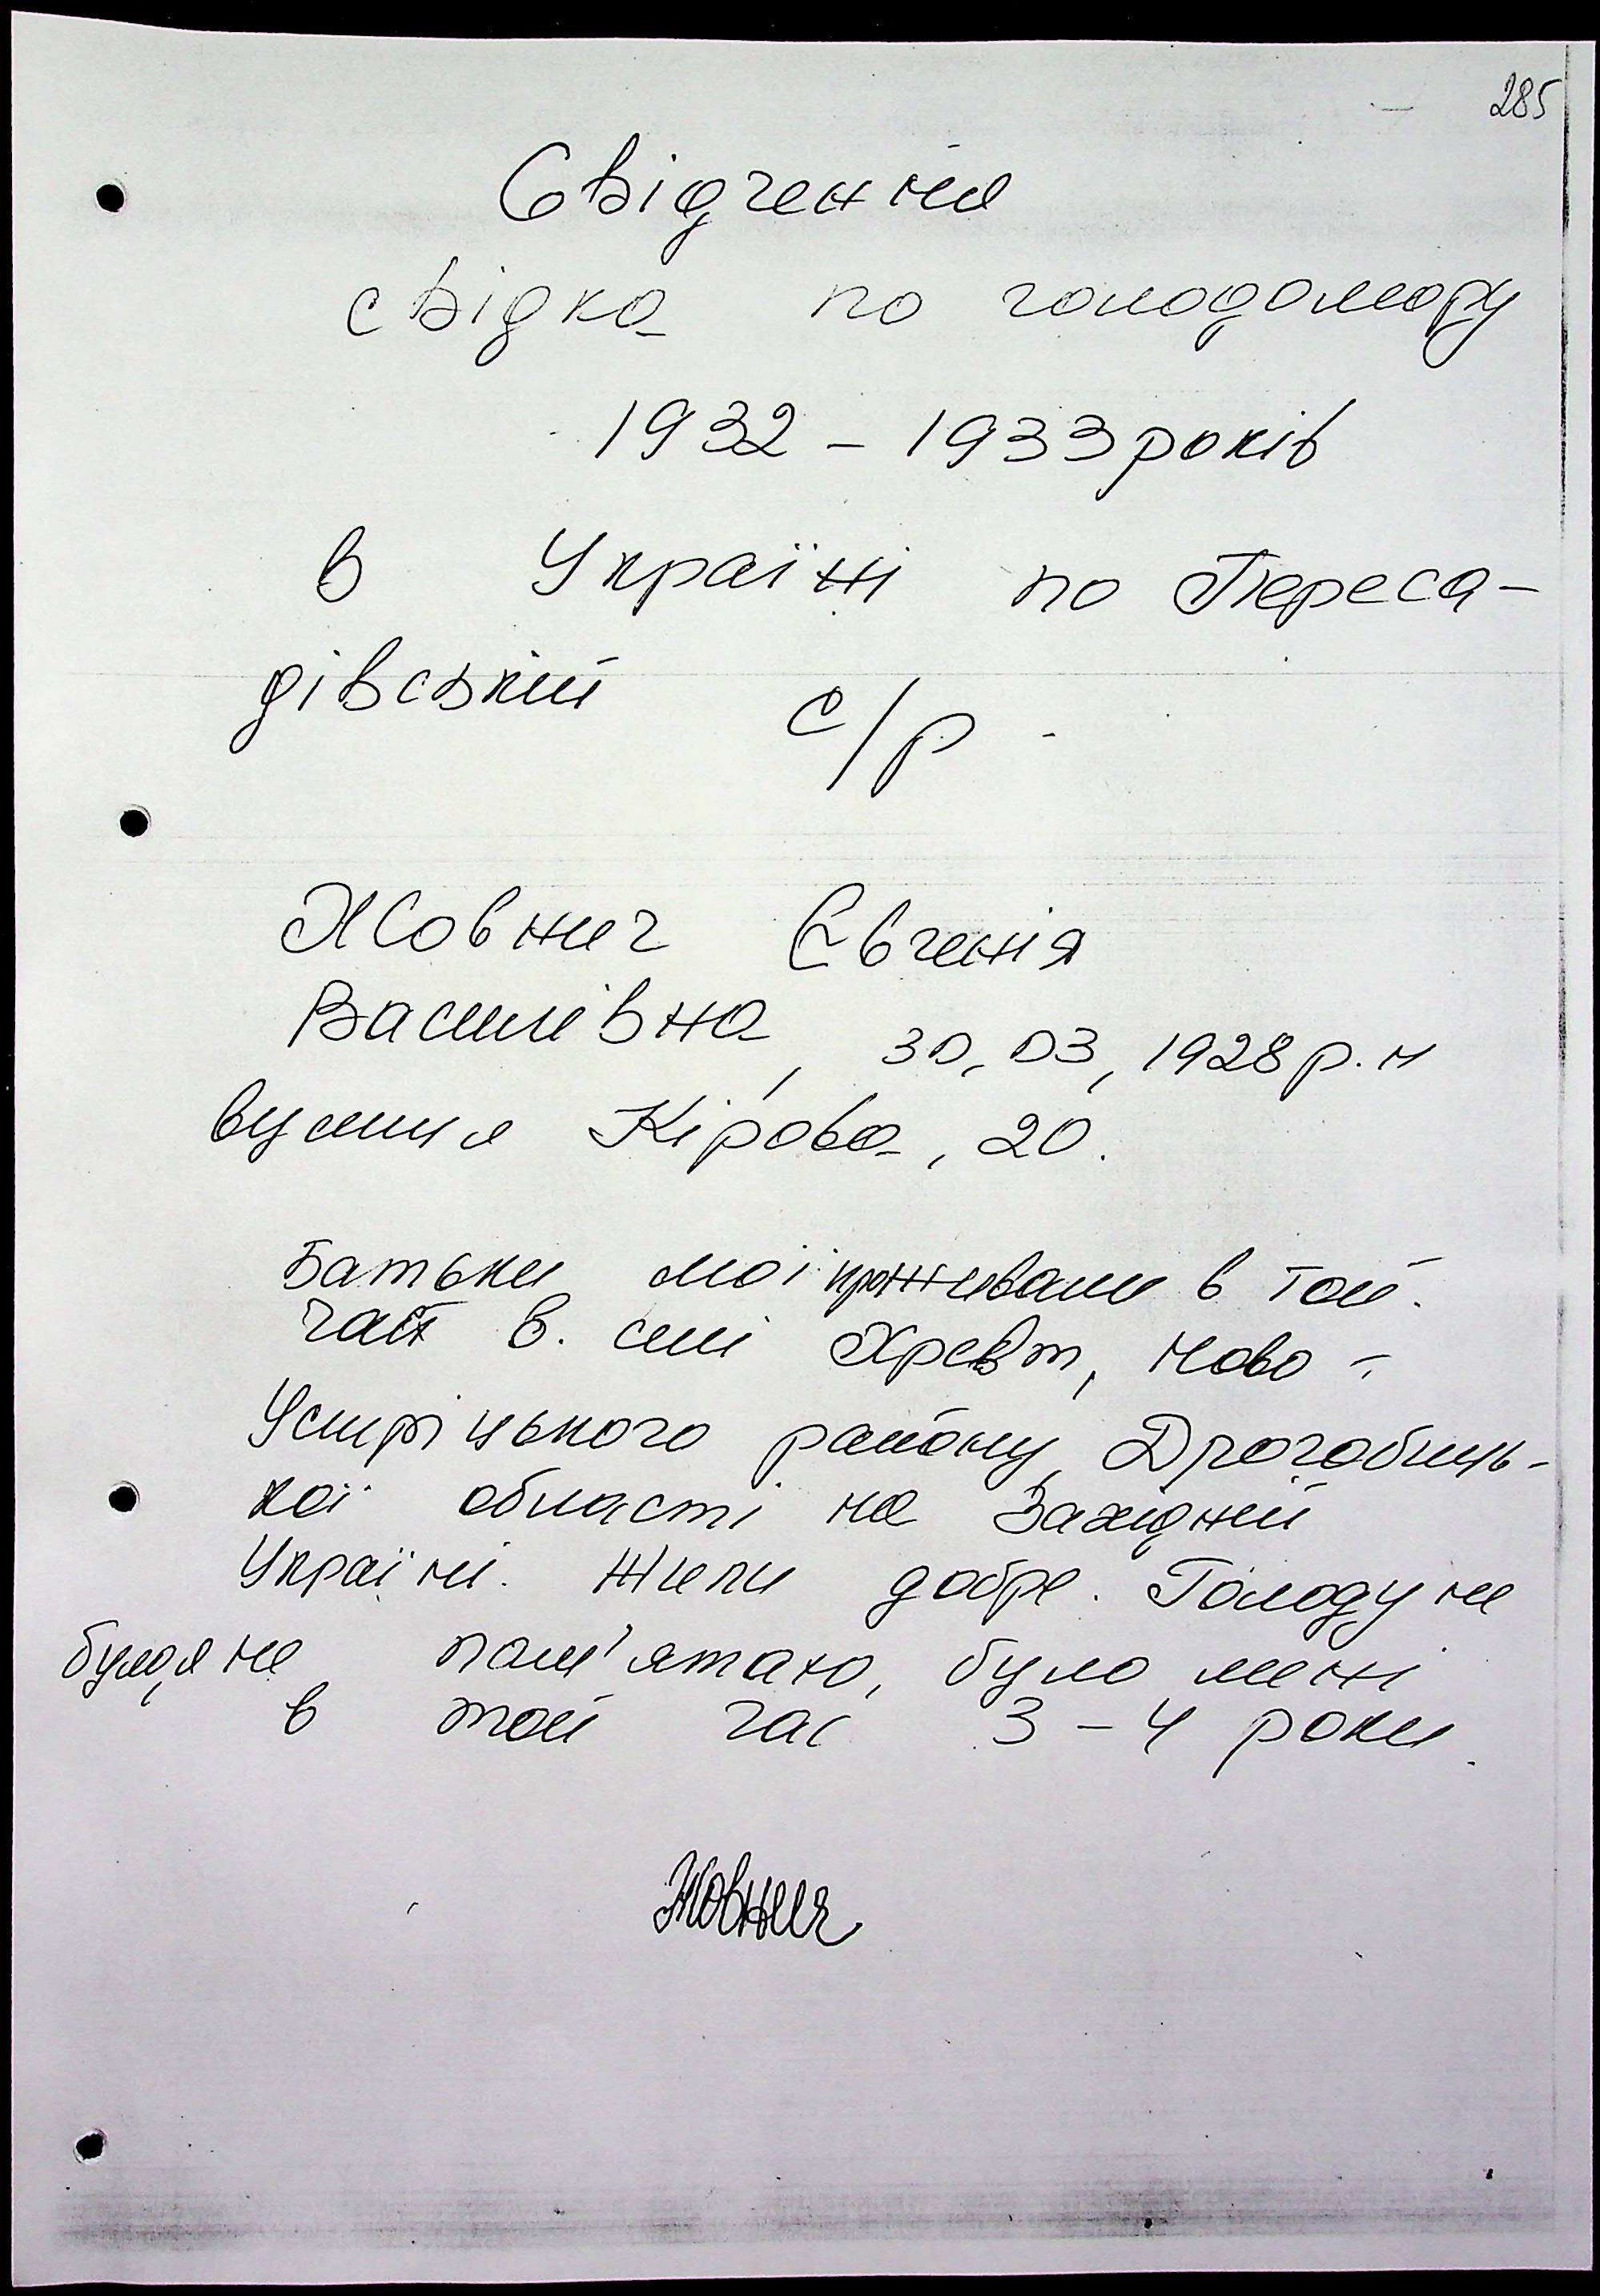 285
Свідчення
свідка по голодомору
1932 - 1933 років
в Україні по Переса-
дівській с/р
Жовнич Євгенія
Василівна, 30,03,1928 р.н
вулиця Кірова, 20.
Батьки мої проживали в той
час в. селі Хревт, Ново-
Устріцького району, Дрогобиць-
кої області на Західній
Україні. Жили добре. Голоду не
було, я не пам'ятаю, було мені
в той час 3-4 роки.
Жовнич